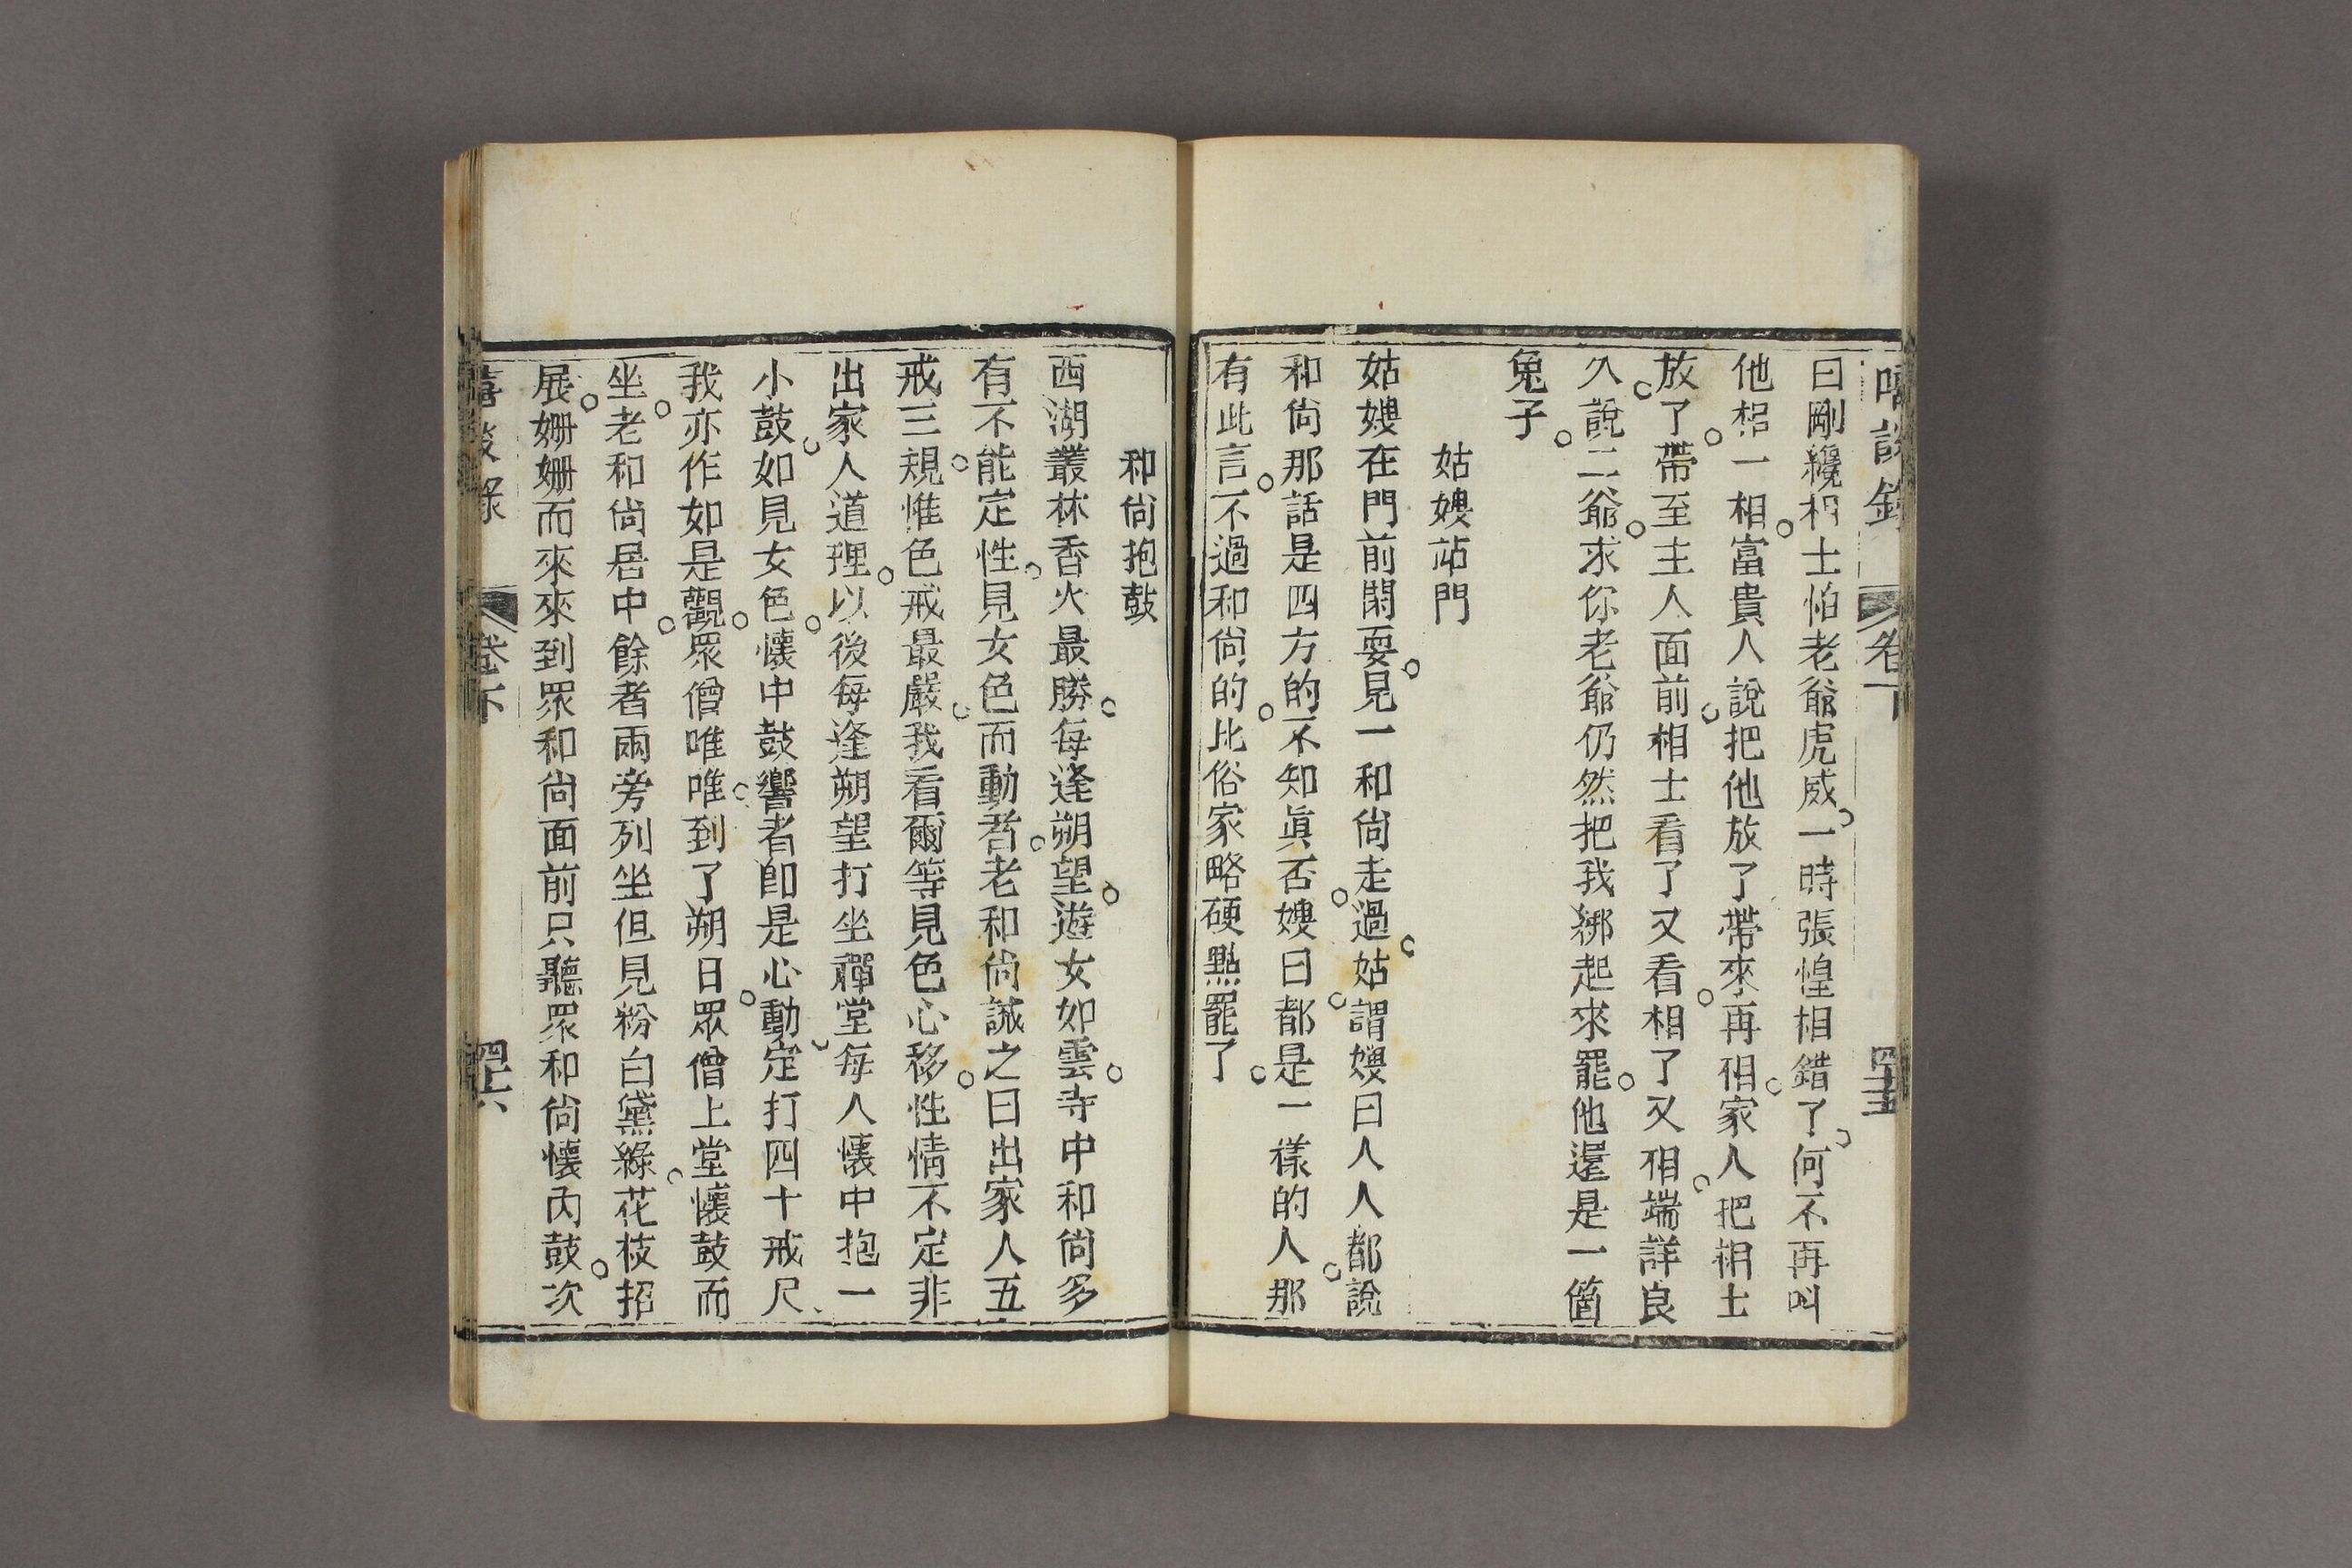 嘻談錄 卷下 四十五
曰剛纔相士怕老爺虎威一時張惶相錯了何不再叫
他相一相富貴人說把他放了帶來再相家人把相士
放了帶至主人面前相士看了又看相了又相端詳良
久說二爺求你老爺仍然把我綁起來罷他還是一箇
兔子
姑嫂站門
姑嫂在門前閒耍見一和尙走過姑謂嫂曰人人都說
和尙那話是四方的不知眞否嫂曰都是一樣的人那
有此言不過和尙的比俗家略硬點罷了
和尙抱鼓
西湖叢林香火最勝每逢朔望遊女如雲寺中和尙多
有不能定性見女色而動者老和尙誡之曰出家人五
戒三規惟色戒最嚴我看爾等見色心移性情不定非
出家人道理以後每逢朔望打坐禪堂每人懷中抱一
小鼓如見女色懷中鼓響者卽是心動定打四十戒尺
我亦作如是觀眾僧唯唯到了朔日眾僧上堂懷鼓而
坐老和尙居中餘者兩旁列坐但見粉白黛綠花枝招
展姍姍而來來到眾和尙面前只聽眾和尙懷內鼓次
嘻談錄 卷下 四十六